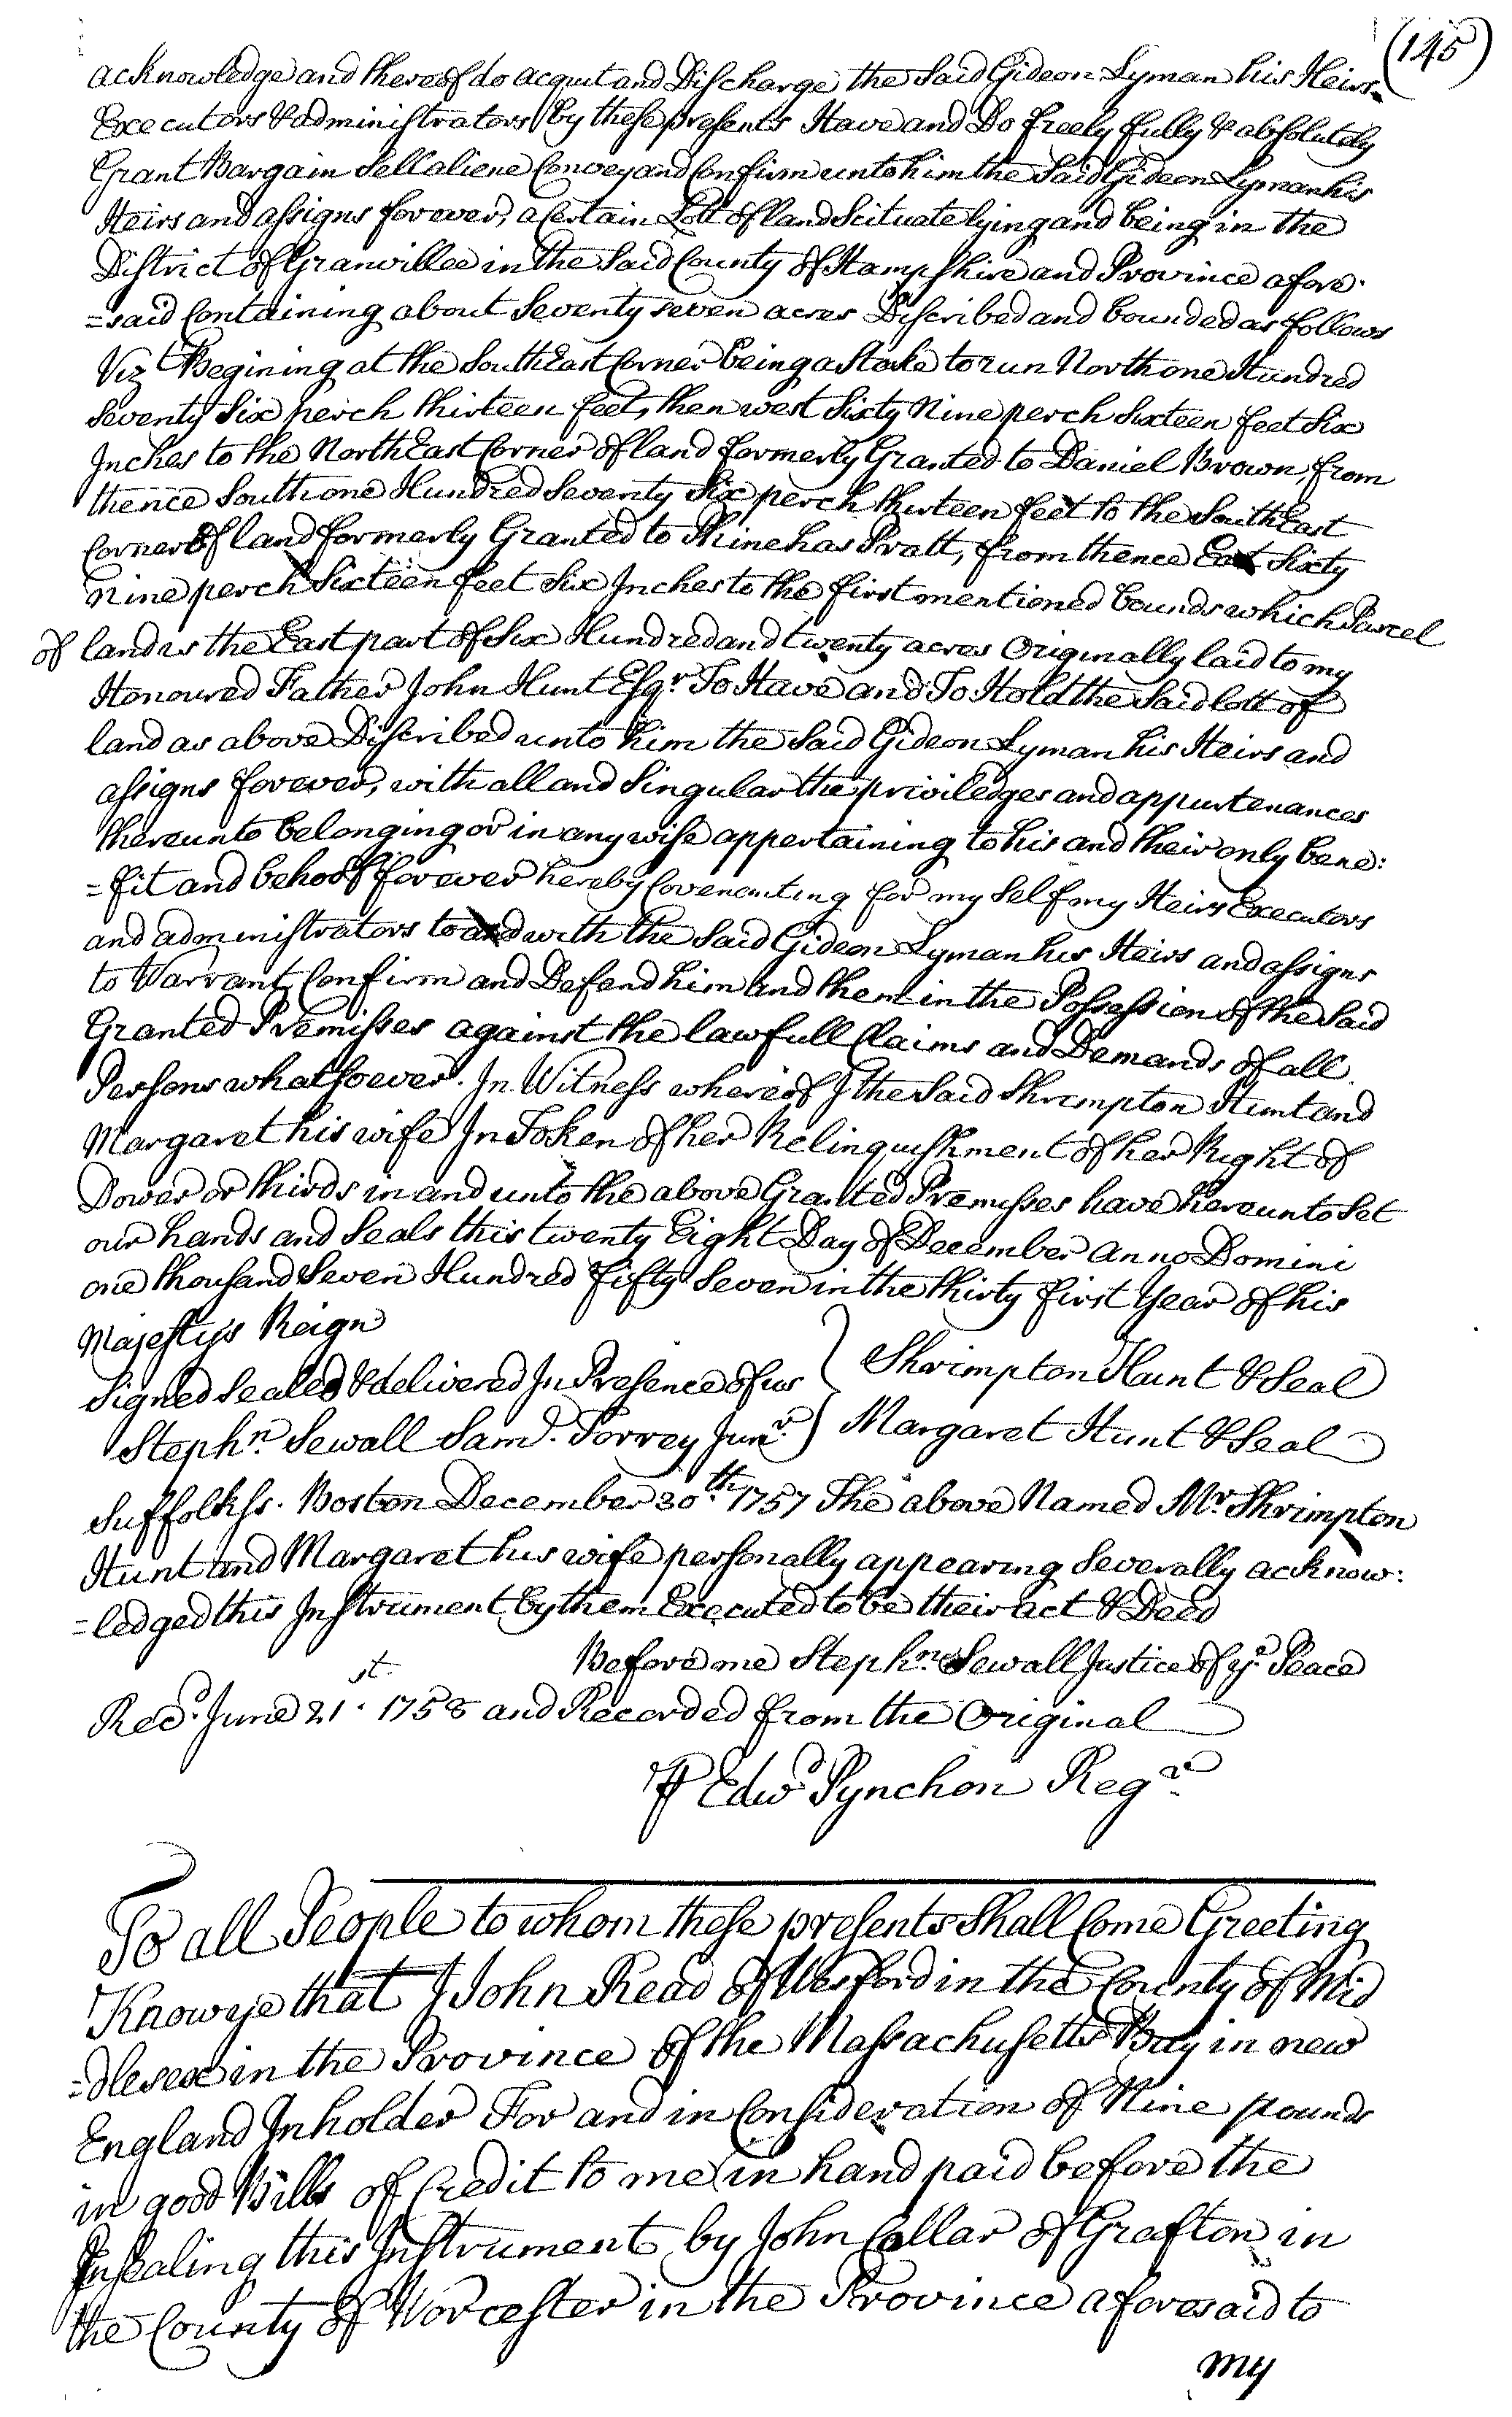 (145)
acknowledge and thereof do acquit and Discharge the Said Gideon Lyman his Heirs
Executors & administrators by these presents Have and Do freely fully & absolutely
Grant Bargain Sell aliene Convey and Confirm unto him the Said Gideon Lyman his
Heirs and assigns forever, a Certain Lott of land Scituate lying and being in the
District of Granvillee in the Said County of Hampshire and Province afore-
=said Containing about Seventy seven acres Discribed and bounded as follows
Viz.t Begining at the South East Corner being a Stake to run North one Hundred
Seventy Six perch thirteen feet, then west Sixty Nine perch Sixteen feet Six
Inches to the North East Corner of land formerly Granted to Daniel Brown, from
thence South one Hundred Seventy Six perch thirteen feet to the South East
Corner of land formerly Granted to Phinehas Pratt, from thence East Sixty
Nine perch Sixteen feet Six Inches to the first mentioned bounds which Parcel
of land is the East part of Six Hundred and twenty acres Originally laid to my
Honoured Father John Hunt Esq.r To Have and To Hold the Said lott of
land as above Discribed unto him the Said Gideon Lyman his Heirs and
assigns forever, with all and Singular the priviledges and appurtenances
thereunto belonging or in any wise appertaining to his and their only bene:
=fit and behoof forever hereby Covenanting for my Self my Heirs Executors
and administrators to and with the Said Gideon Lyman his Heirs and assigns
to Warrant, Confirm and Defend him and them in the Possession of the Said
Granted Premisses against the lawfull Claims and Demands of all
Persons whatsoever. In Witness whereof I the Said Shrimpton Hunt and
Margaret his wife In Token of her Relinquishment of her Right of
Dower or thirds in and unto the above Granted Premisses have hereunto Set
our hands and Seals this twenty Eight Day of December anno Domini
one thousand Seven Hundred fifty Seven in the thirty first Year of his
Majestys Reign
Signed Sealed & delivered In Presence of us } Shrimpton Hunt & Seal
Steph.n Sewall Sam.l Torrey Jun.r } Margaret Hunt & Seal
Suffolk ss. Boston December 30.th 1757 The above Named M.r Shrimpton
Hunt and Margaret his wife personally appearing Severally acknow:
=ledged this Instrument by them Executed to be their act & Deed
Before me Steph.n Sewall Justice of y.e Peace
Rec.d June 21.st 1758 and Recorded from the Original
P Edw.d Pynchon Reg.r
To all People to whom these presents Shall Come Greeting
Know ye that I John Read of Wesford in the County of Mid
=dlesex in the Province of the Massachusetts Bay in new
England Inholder For and in Consideration of Nine pounds
in good Bills of Credit to me in hand paid before the
Insealing this Instrument by John Collar of Grafton in
the County of Worcester in the Province aforesaid to
my